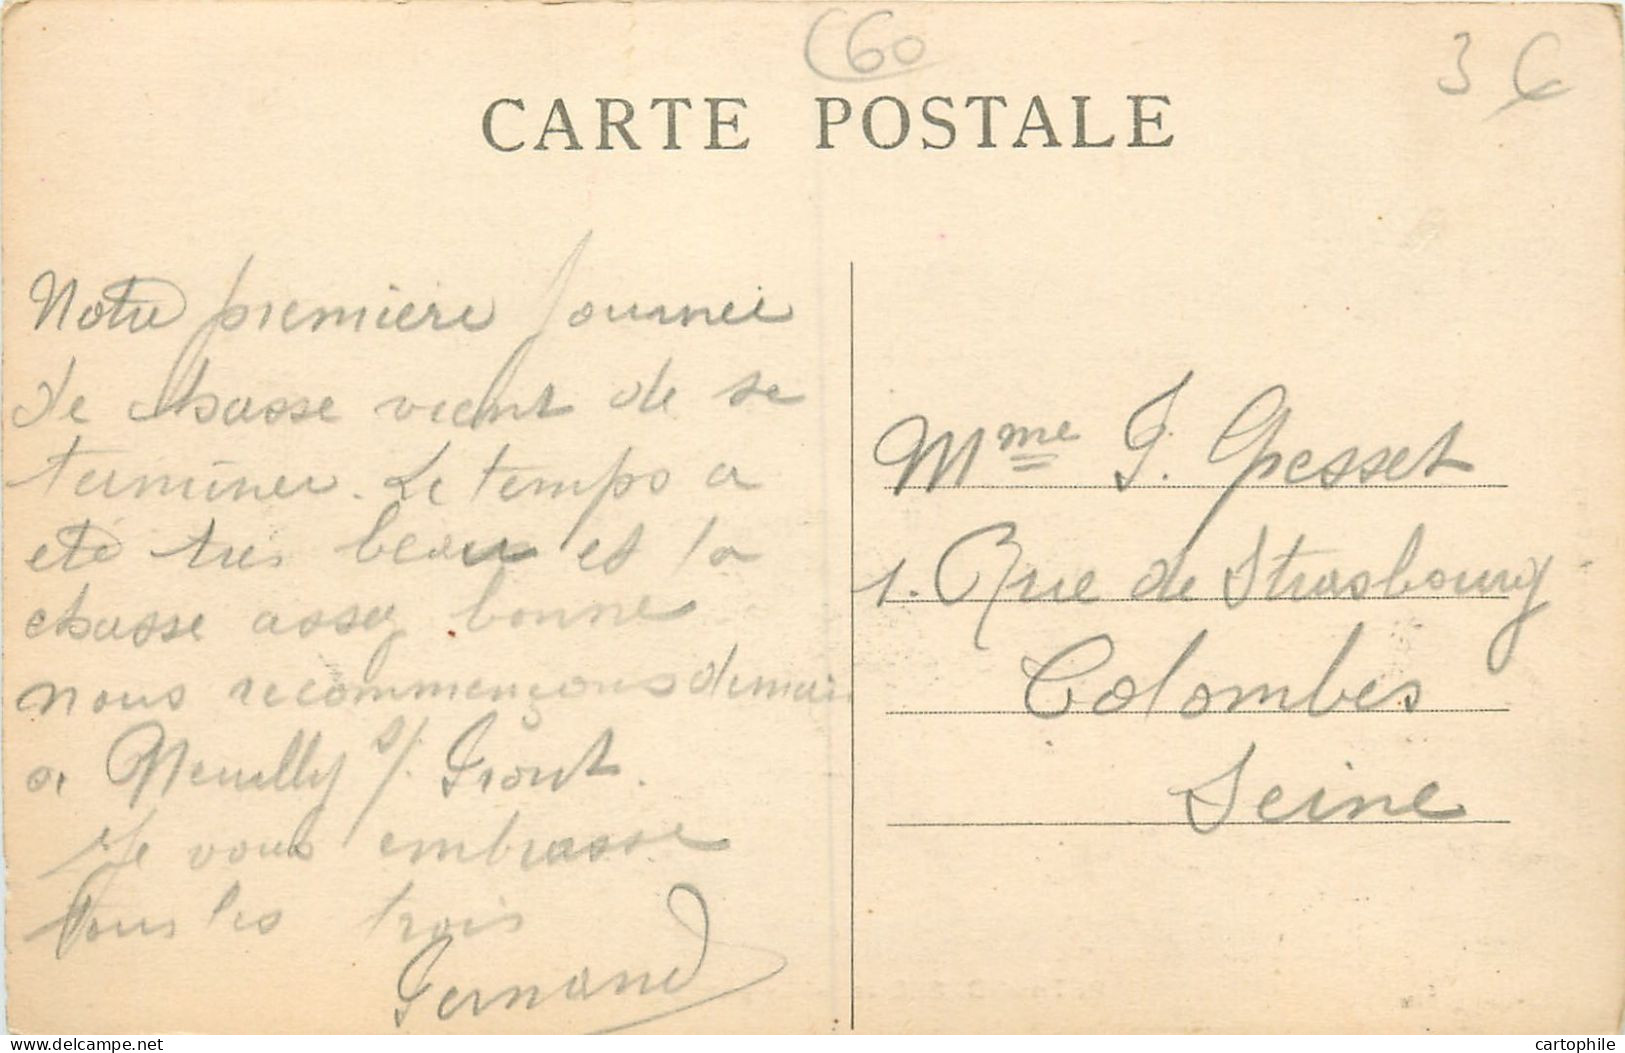 C60
3 €
CARTE POSTALE
Notre première journée
de chasse vient de se
terminer. Le temps a
été très beau et la
chasse assez bonne
nous recommençons demain
a Neuilly s/ Front.
Je vous embrasse
tous les trois
Fernand
Mme F. Gesset
1. Rue de Strasbourg
Colombes
Seine
www.delcampe.net
cartophile